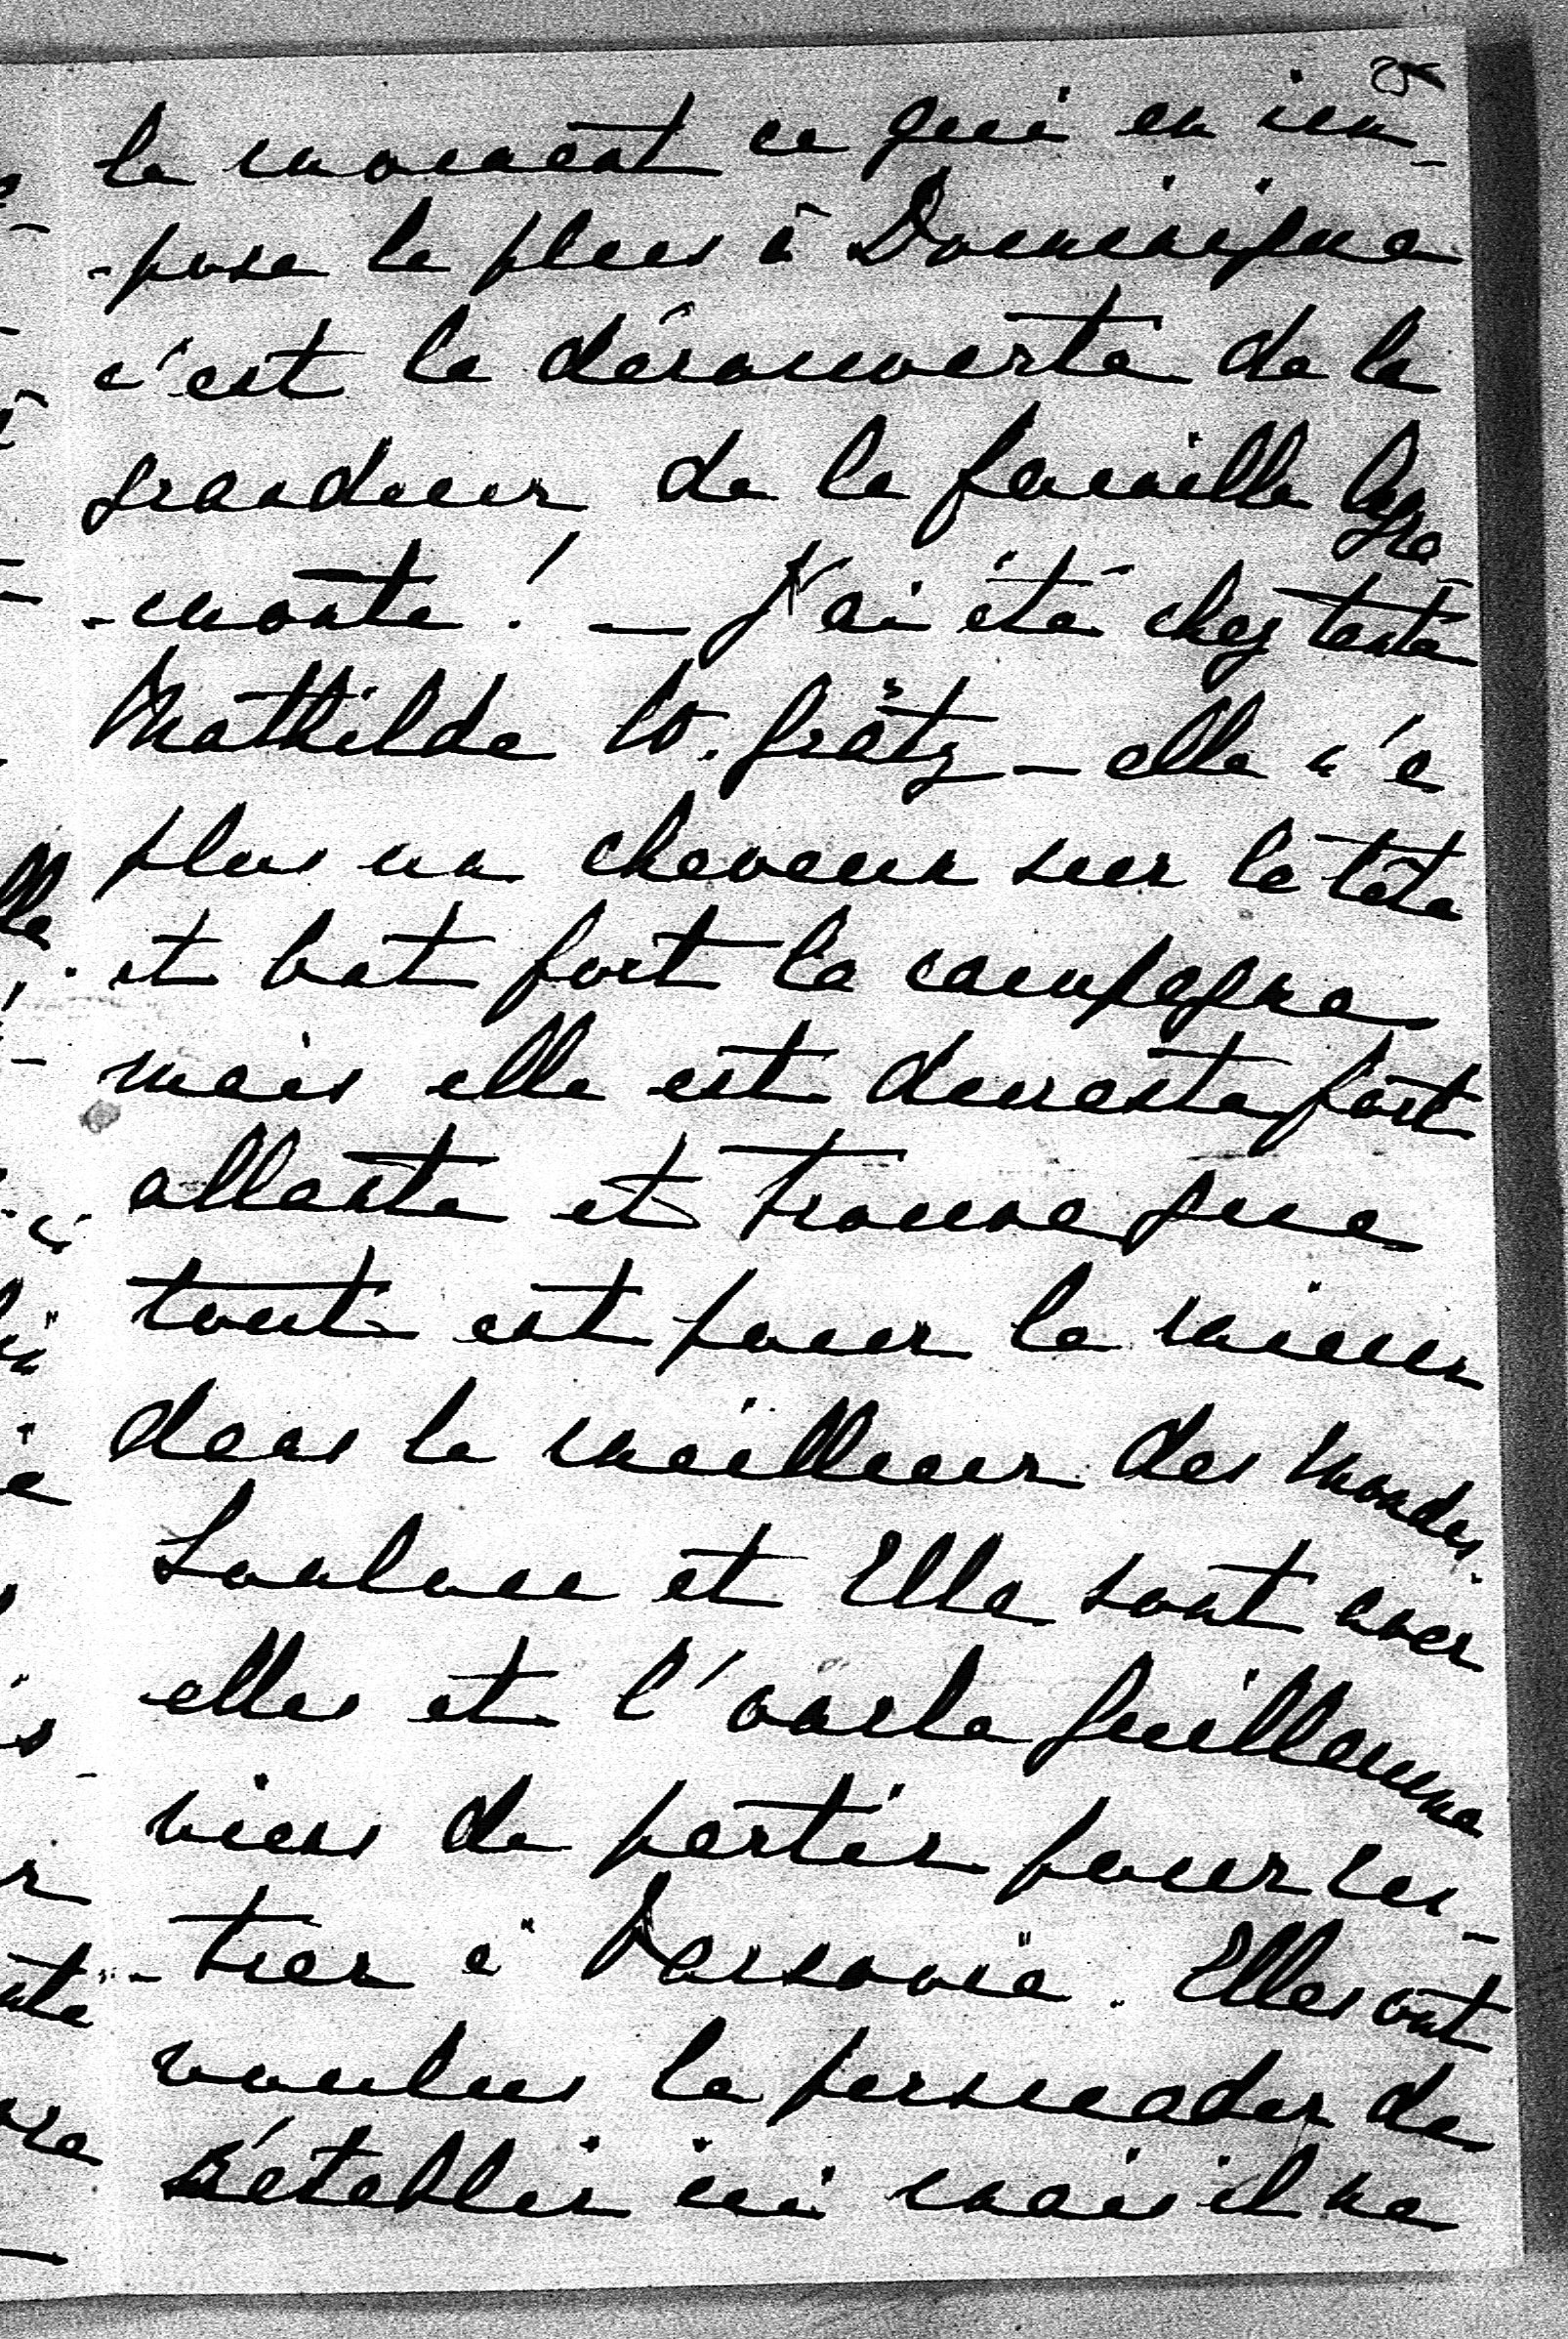 le moment ce qui en im-
-pose le plus à Dominique
c'est la découverte de la
grandeur de la famille Agra
-monte! — J'ai été chez tante
Mathilde W. Grätz — elle n'a
plus un cheveux sur la tête
et bat fort la campagne
mais elle est du reste fort
allante et trouve que
tout est pour le mieux
dans le meilleur des mondes.
Loulou et Ella sont avec
elles et l'oncle Guillaume
viens de partir pour ren-
-trer à Varsovie. Elles ont
voulues le persuader de
s'établir ici mais il ne